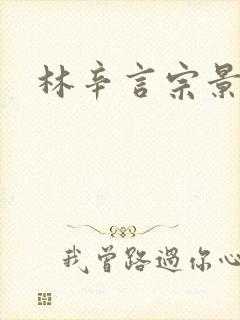 林辛言宗景
我曾路過你心